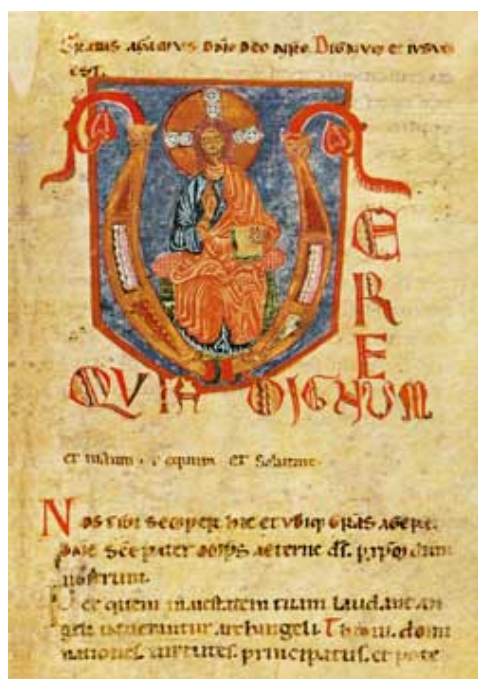 Gratias agamus dño deo nro. Dignum et iustum
est.
VERE
QVIA DIGNUM
et iustum. et equum et Salutare.
Nos tibi semper hic et ubiq gras agere.
dñe sce pater omps aeterne ds. p xpm dnm
nostrum.
Per quem maiestatem tuam laudant an
geli venerantur archangeli. Throni. domi
nationes. virtutes. principatus. et pote